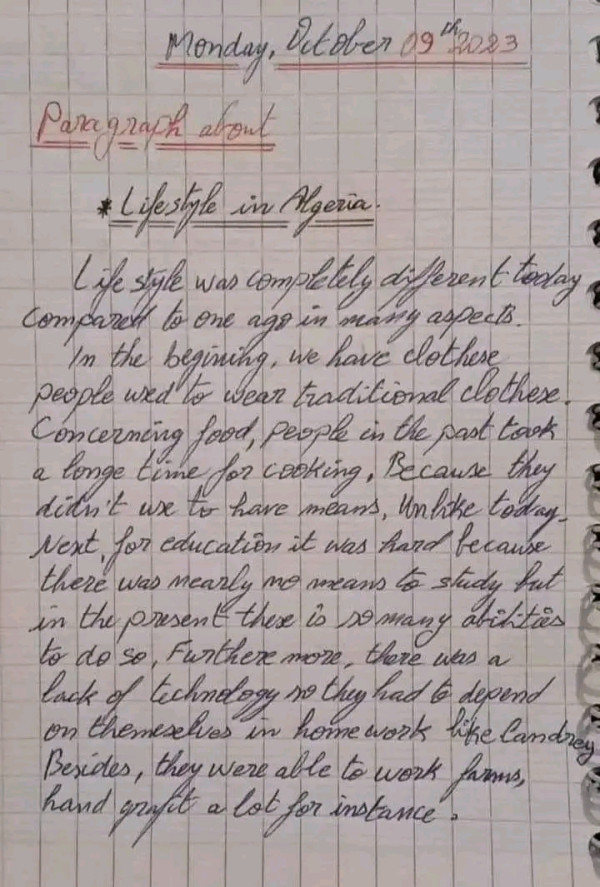 Monday, October 09th 2023
Paragraph about
* Lifestyle in Algeria.
Life style was completely different today
compared to one ago in many aspects.
In the begining, we have clothese
people used to wear traditional clothese.
Concerning food, people in the past took
a longe time for cooking, Because they
didn't use to have means, Unlike today.
Next, for education it was hard because
there was nearly no means to study but
in the present there is so many abilities
to do so, Furthere more, there was a
lack of technology so they had to depend
on themeselves in home work like Landrey
Besides, they were able to work farms,
hand graft a lot for instance.